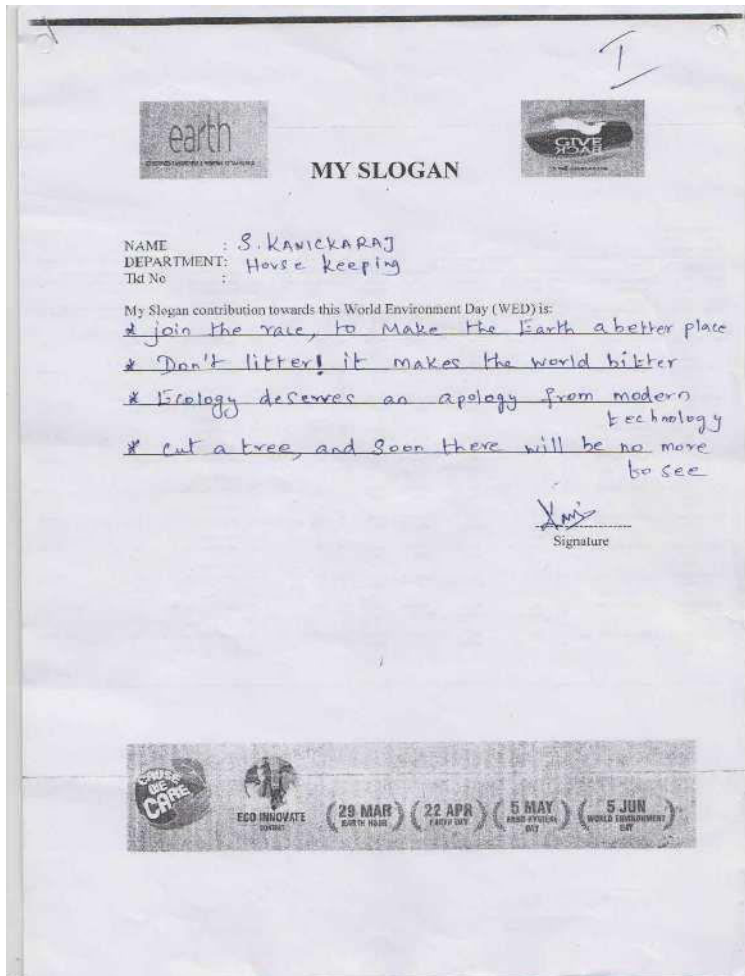 I
earth
GIVE
BACK
MY SLOGAN
NAME : S. KANICKARAJ
DEPARTMENT: House keeping
Tkt No :
My Slogan contribution towards this World Environment Day (WED) is:
* join the race, to Make the Earth a better place
* Don't litter! it makes the world bitter
* Ecology deserves an apology from modern
technology
* cut a tree, and Soon there will be no more
to see
Signature
CAUSE
WE
CARE
ECO INNOVATE
CONTEST
29 MAR
EARTH HOUR
22 APR
EARTH DAY
5 MAY
HAND HYGIENE
DAY
5 JUN
WORLD ENVIRONMENT
DAY